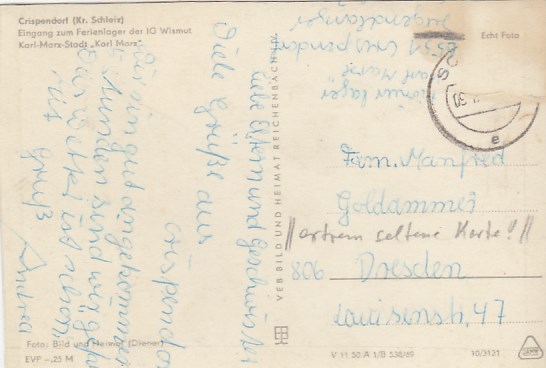 Crispendorf (Kr. Schleiz)
Eingang zum Ferienlager der IG Wismut
Karl-Marx-Stadt „Karl Marx"
Liebe Eltern und Geschwister
Viele Grüße aus
Crispendorf
Wir sind gut angekommen
Stunden sind wir
Das Wetter ist schon
Mit Gruß
Andrea
Foto: Bild und Heimat (Diener)
EVP -,25 M
VEB BILD UND HEIMAT REICHENBACH
Echt Foto
Lager
Karl Marx
6551 Crispendorf
Fam. Manfred
Goldammer
//extrem seltene Karte!//
806 Dresden
Louisenstr. 47
V 11 50 A 1/B 538/69
10/3131